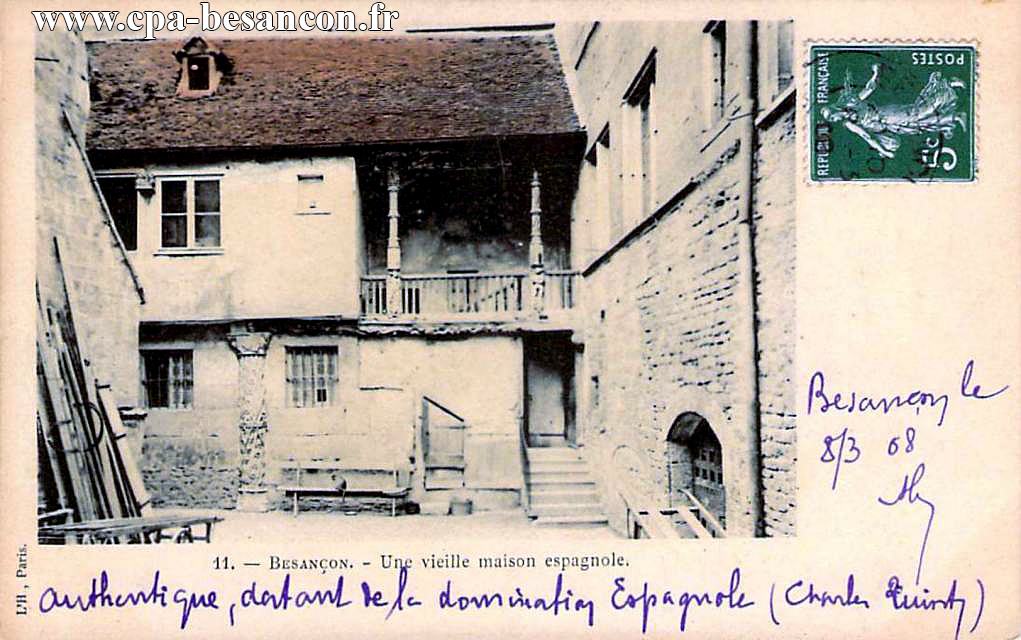 www.cpa-besancon.fr
POSTES
REPUBLIQUE FRANÇAISE
5c
Besançon le
8/3 08
11. — BESANÇON. - Une vieille maison espagnole.
authentique, datant de la domination Espagnole (Charles Quint)
L'H., Paris.